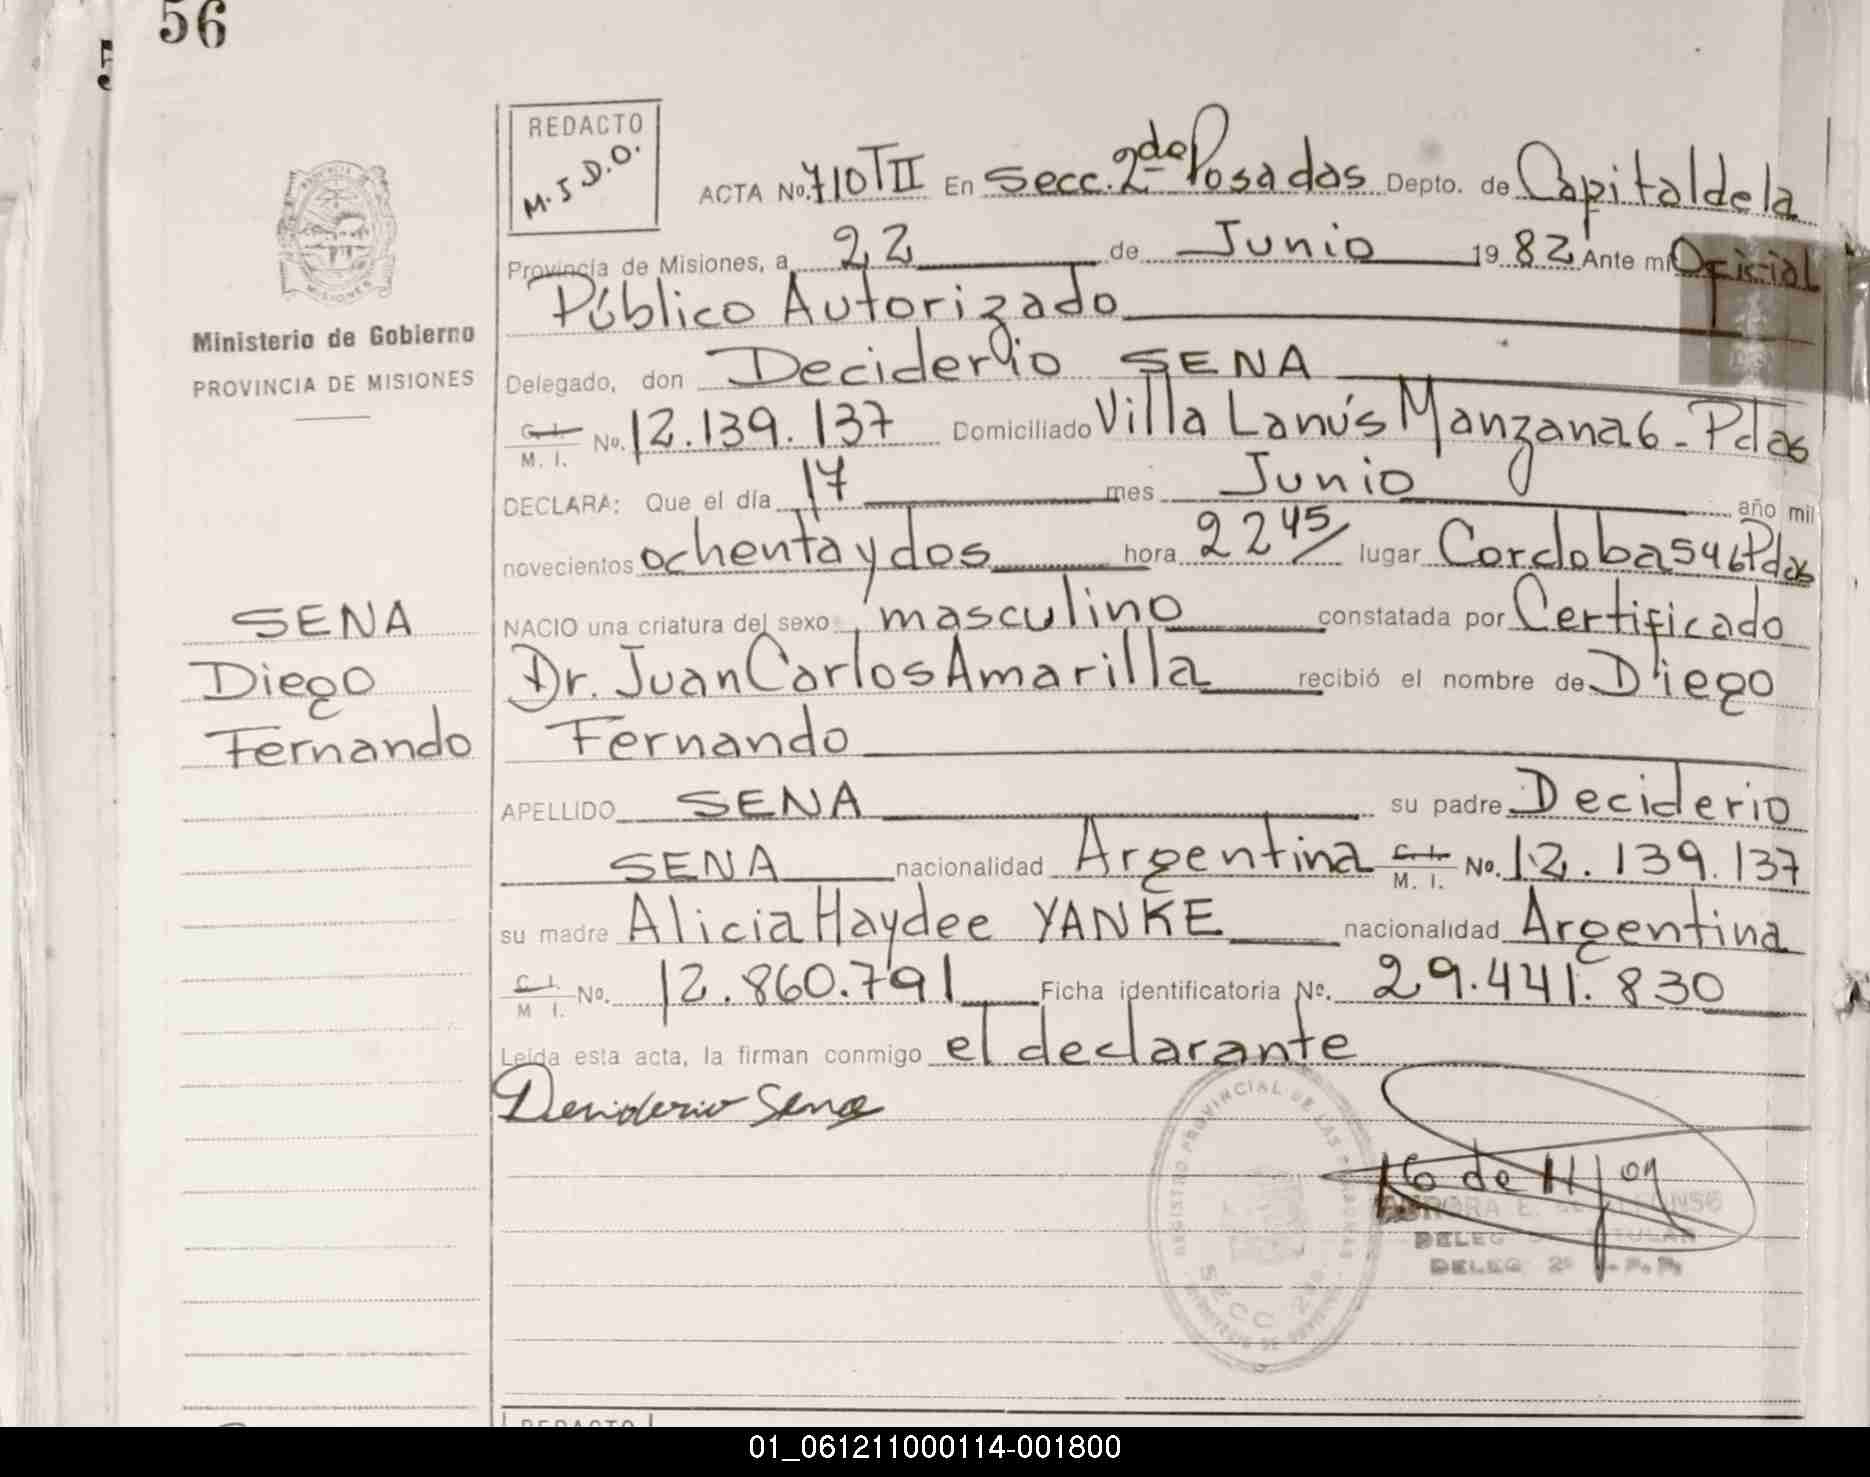 56
REDACTO
M.J.D.O.
ACTA No. 710 TII En Secc. 2da Posadas Depto. de Capital de la
Provincia de Misiones, a 22 de Junio 1982 Ante mi Oficial
Público Autorizado
Ministerio de Gobierno
PROVINCIA DE MISIONES
Delegado, don Deciderio SENA
C. I. M. I. No. 12.139.137 Domiciliado Villa Lanús Manzana 6 - Pdas
DECLARA: Que el día 17 mes Junio año mil
novecientos ochenta y dos hora 22 45/ lugar Cordoba 546 Pdas
SENA
Diego
Fernando
NACIO una criatura del sexo masculino constatada por Certificado
Dr. Juan Carlos Amarilla recibió el nombre de Diego
Fernando
APELLIDO SENA su padre Deciderio
SENA nacionalidad Argentina C. I. M. I. No. 12.139.137
su madre Alicia Haydee YANKE nacionalidad Argentina
C. I. M I. No. 12.860.791 Ficha identificatoria No. 29.441.830
Leída esta acta, la firman conmigo el declarante
Deciderio Sena
REGISTRO PROVINCIAL DE LAS PERSONAS
SECC. 2da
AURORA E. DE
DELEG TITULAR
DELEG 2º
REDACTO
01_061211000114-001800